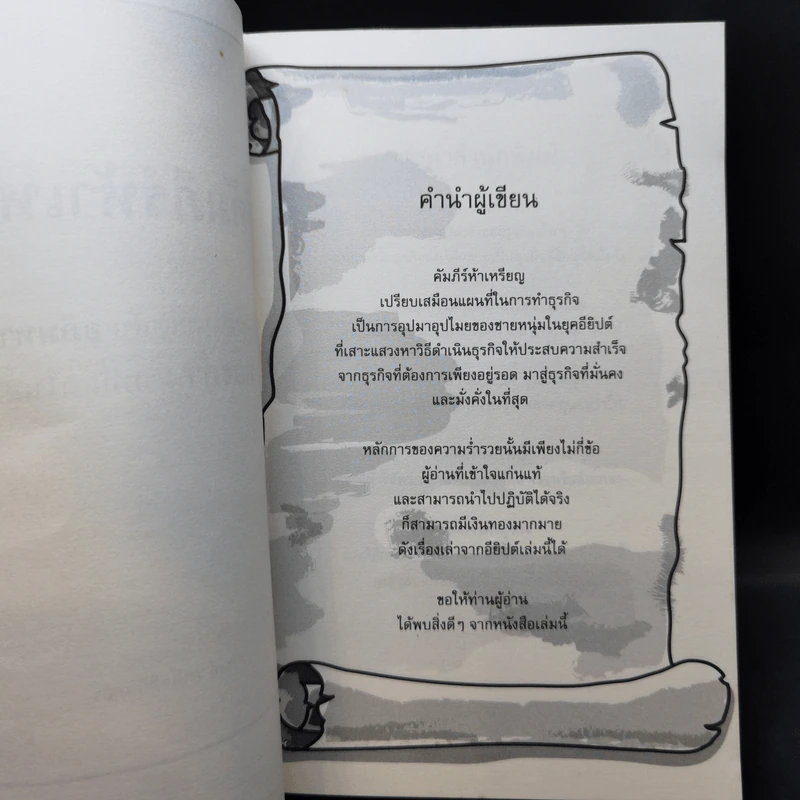 คำนำผู้เขียน
คัมภีร์ห้าเหรียญ
เปรียบเสมือนแผนที่ในการทำธุรกิจ
เป็นการอุปมาอุปไมยของชายหนุ่มในยุคอียิปต์
ที่เสาะแสวงหาวิธีดำเนินธุรกิจให้ประสบความสำเร็จ
จากธุรกิจที่ต้องการเพียงอยู่รอด มาสู่ธุรกิจที่มั่นคง
และมั่งคั่งในที่สุด
หลักการของความร่ำรวยนั้นมีเพียงไม่กี่ข้อ
ผู้อ่านที่เข้าใจแก่นแท้
และสามารถนำไปปฏิบัติได้จริง
ก็สามารถมีเงินทองมากมาย
ดังเรื่องเล่าจากอียิปต์เล่มนี้ได้
ขอให้ท่านผู้อ่าน
ได้พบสิ่งดีๆ จากหนังสือเล่มนี้